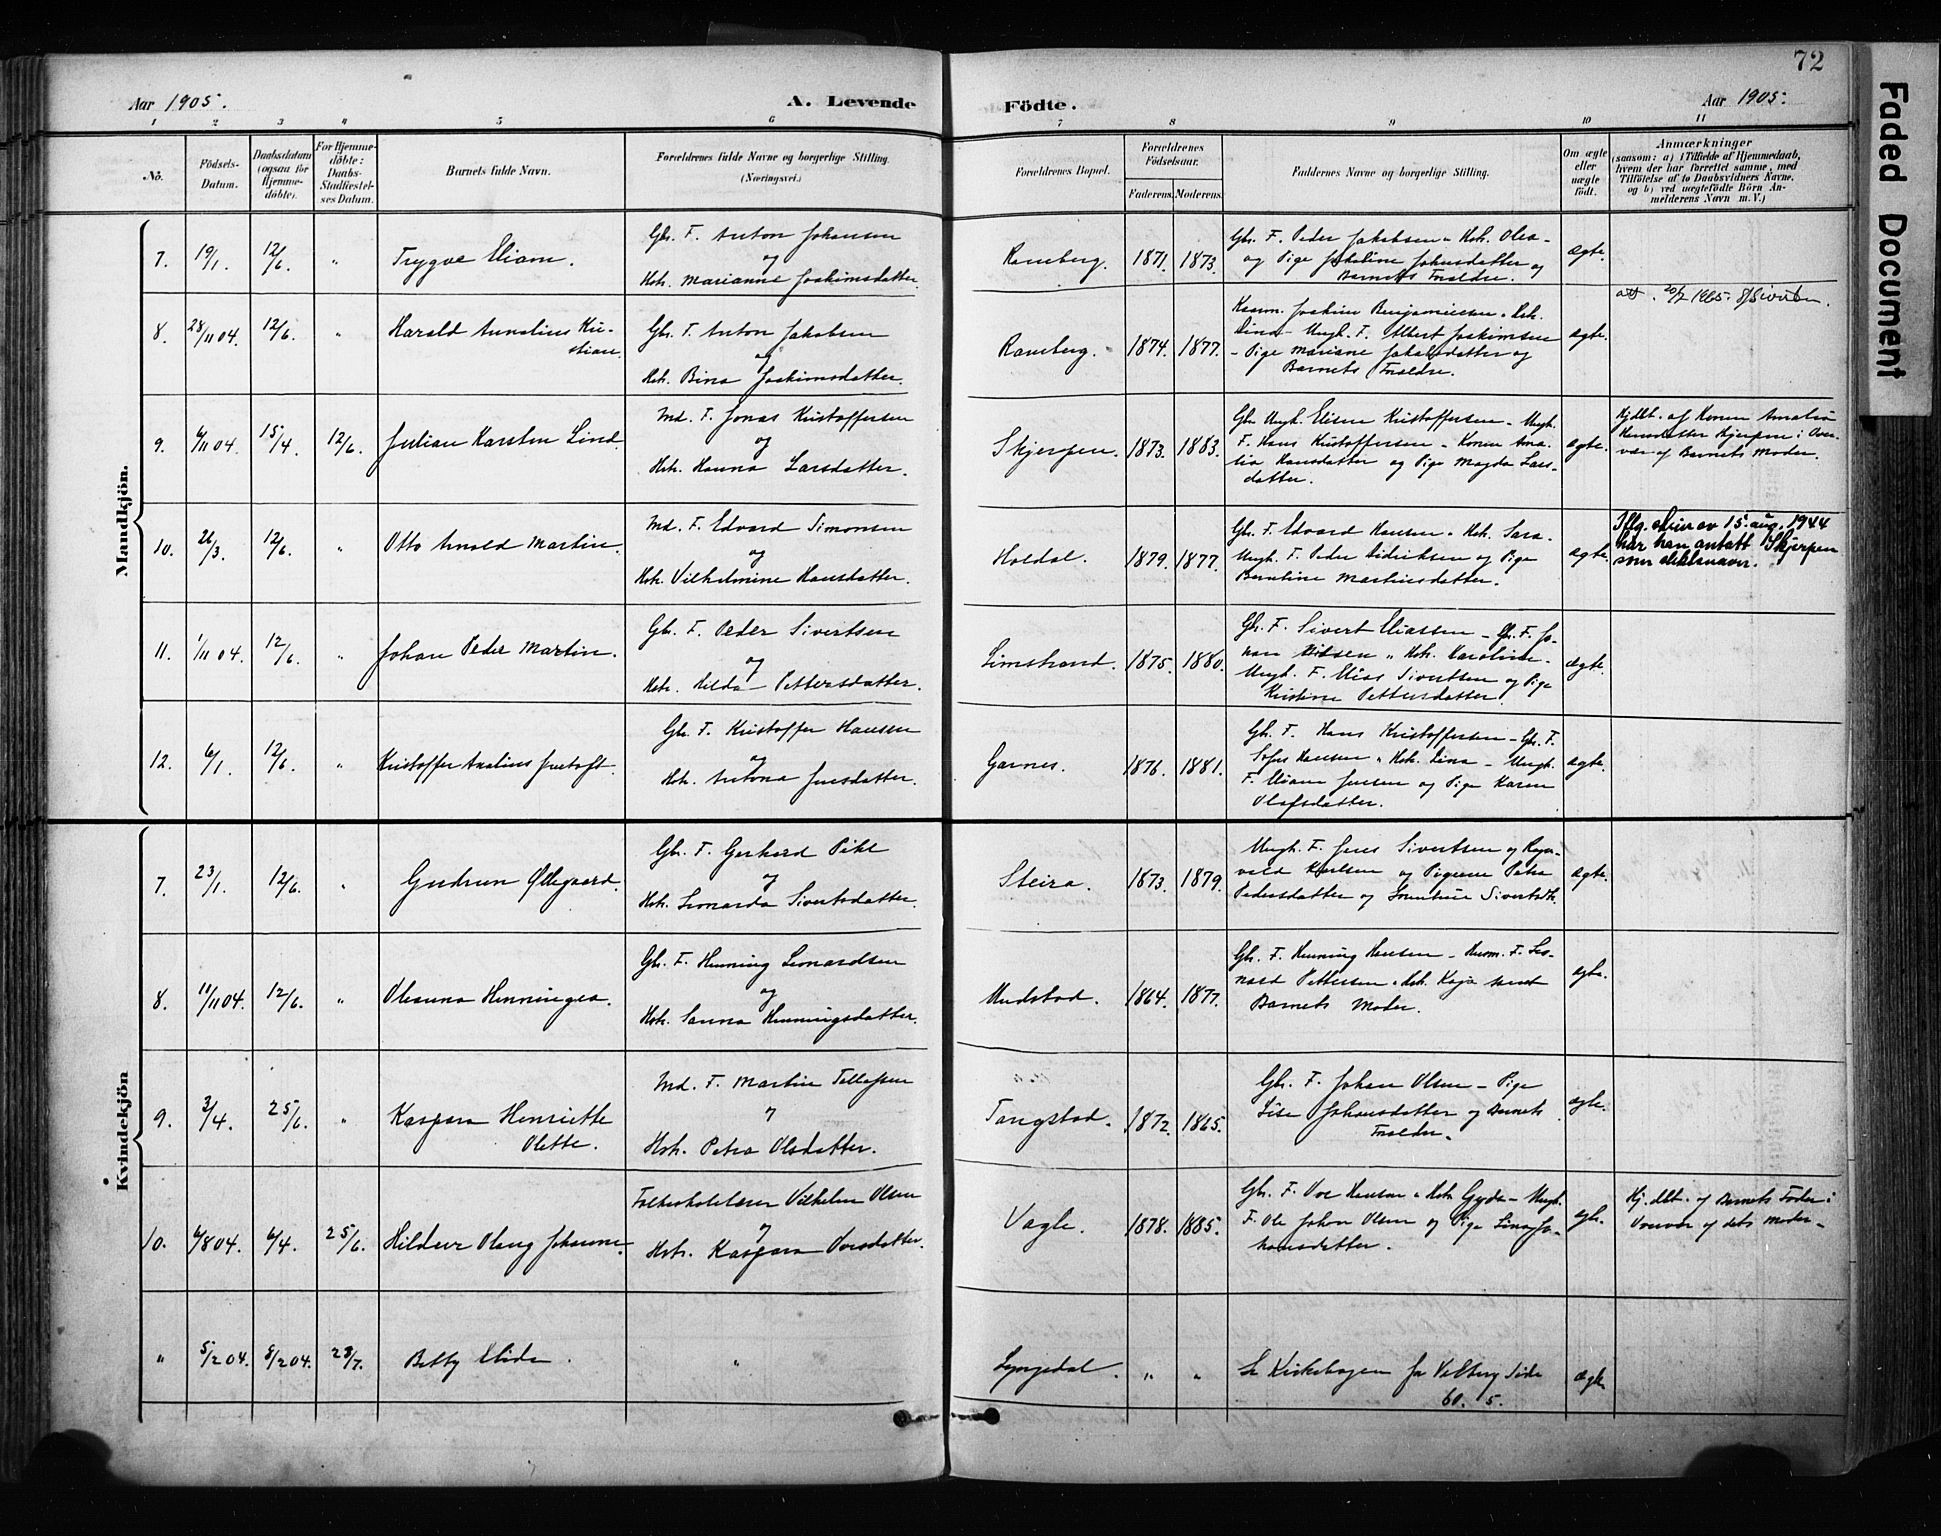 72
Faded Document
Aar 1905.
A. Levende
Födte.
Aar 1905.
1 2 3 4 5 6 7 8 9 10 11
No.
Födsels-
Datum.
Daabsdatum
(ogsaa for
Hjemme-
döbte).
For Hjemme-
döbte:
Daabs-
Stadfæstel-
ses Datum.
Barnets fulde Navn.
Forældrenes fulde Navne og borgerlige Stilling.
(Næringsvei.)
Forældrenes Bopæl.
Forældrenes
Födselsaar.
Faderens. Moderens.
Faddernes Navne og borgerlige Stilling.
Om ægte
eller
uægte
födt.
Anmærkninger
(saasom: a) i Tilfælde af Hjemmedaab,
hvem der har forrettet samme, med
Tilföielse af to Daabsvidners Navne,
og b) ved uægtefödte Börn An-
melderens Navn m. V.)
Mandkjön.
7. 19/1. 12/6. " Trygve Eliam.
Gbr. F. Anton Johansen
og
Hstr. Marianne Joakimsdatter.
Ramberg. 1871. 1873.
Gbr. F. Peder Jakobsen " Hstr. Olea -
og Pige Johsdatter og
Barnets Forældre.
ægte.
8. 28/11 04. 12/6. " Harald Annalius Kri-
stian.
Gbr. F. Anton Jakobsen
og
Hstr. Bina Joakimsdatter.
Ramberg. 1874. 1877.
Joakim Benjaminsen " Hstr.
Lina - Ungk. F. Albert Joakimsen
- Pige Mariane Jakobsdatter og
Barnets Forældre.
ægte.
20/2 1965.
9. 6/11 04. 15/4. 12/6. Julian Karsten Lind.
Md. F. Jonas Kristoffersen
og
Hstr. Hanna Larsdatter.
Skjerpen. 1873. 1883.
Gbr. Ungk. Elisen Kristoffersen - Ungk.
F. Hans Kristoffersen - Konen Ama-
lia Hansdatter og Pige Magda Lars-
datter.
ægte.
Hj.dbt. af Konen Amalia
Hansdatter Skjerpen i Over-
vær af Barnets Moder.
10. 26/3. 12/6. " Otto Arnold Martin.
Md. F. Edvard Simonsen
og
Hstr. Vilhelmine Hansdatter.
Holdal. 1879. 1877.
Gbr. F. Edvard Hansen " Hstr. Sara.
Ungk. F. Peder Didriksen og Pige
Berntine Martinusdatter.
ægte.
Iflg. skriv av 15. aug. 1944
har han antatt Skjerpen
som slektsnavn.
11. 1/11 04. 12/6. " Johan Peder Martin.
Gbr. F. Peder Sivertsen
og
Hstr. Hilda Pettersdatter.
Limstrand. 1875. 1880.
Gbr. F. Sivert Eliassen - Gbr. F. Jo-
han Nilsen " Hstr. Karoline -
Ungk. F. Elias Sivertsen og Pige
Kristine Pettersdatter.
ægte.
12. 6/1. 12/6. " Kristoffer Analius Jentoft.
Gbr. F. Kristoffer Hansen
og
Hstr. Antona Jensdatter.
Garnes. 1876. 1881.
Gbr. F. Hans Kristoffersen - Gbr. F.
Sofus Hansen " Hstr. Lina - Ungk.
F. Eliam Jensen og Pige Karen
Olafsdatter.
ægte.
Kvindekjön
7. 23/1. 12/6. " Gudrun Øllegaard.
Gbr. F. Gerhard Pihl
og
Hstr. Leonarda Sivertsdatter.
Steira. 1873. 1879.
Ungk. F. Jens Sivertsen og Ragn-
vald Karlsen og Pigerne Petra
Pedersdatter og Sivertsdtr.
ægte.
8. 11/11 04. 12/6. " Oleanna Henningea.
Gbr. F. Henning Leonardsen
og
Hstr. Sanna Henningsdatter.
Mudstad. 1864. 1877.
Gbr. F. Henning Hansen - Husm. F. Leo-
nard Pettersen " Hstr. Kaja samt
Barnets Moder.
ægte.
9. 3/4. 25/6. " Kaspara Henriette
Olette.
Md. F. Martin Tollefsen
og
Hstr. Petra Olsdatter.
Tangstad. 1872. 1865.
Gbr. F. Johan Olsen - Pige
Lise Johansdatter og Barnets
Forældre.
ægte.
10. 6/8 04. 6/4. 25/6. Hildur Olaug Johanne.
Folkeskolelærer Vilhelm Olsen
og
Hstr. Kaspara
Vagle. 1878. 1885.
Gbr. F. Hansen " Hstr. Gyda - Ungk.
F. Ole Johan Olsen og Pige Lina Jo-
hansdatter.
ægte.
Hj.dbt. af Barnets Fader i
Overvær af dets Moder -
" 5/2 04. 8/2 04. 23/7. Betty Elida.
"
Lyngedal. " "
Se Kirkebogen for Valberg Side
60. 5.
ægte